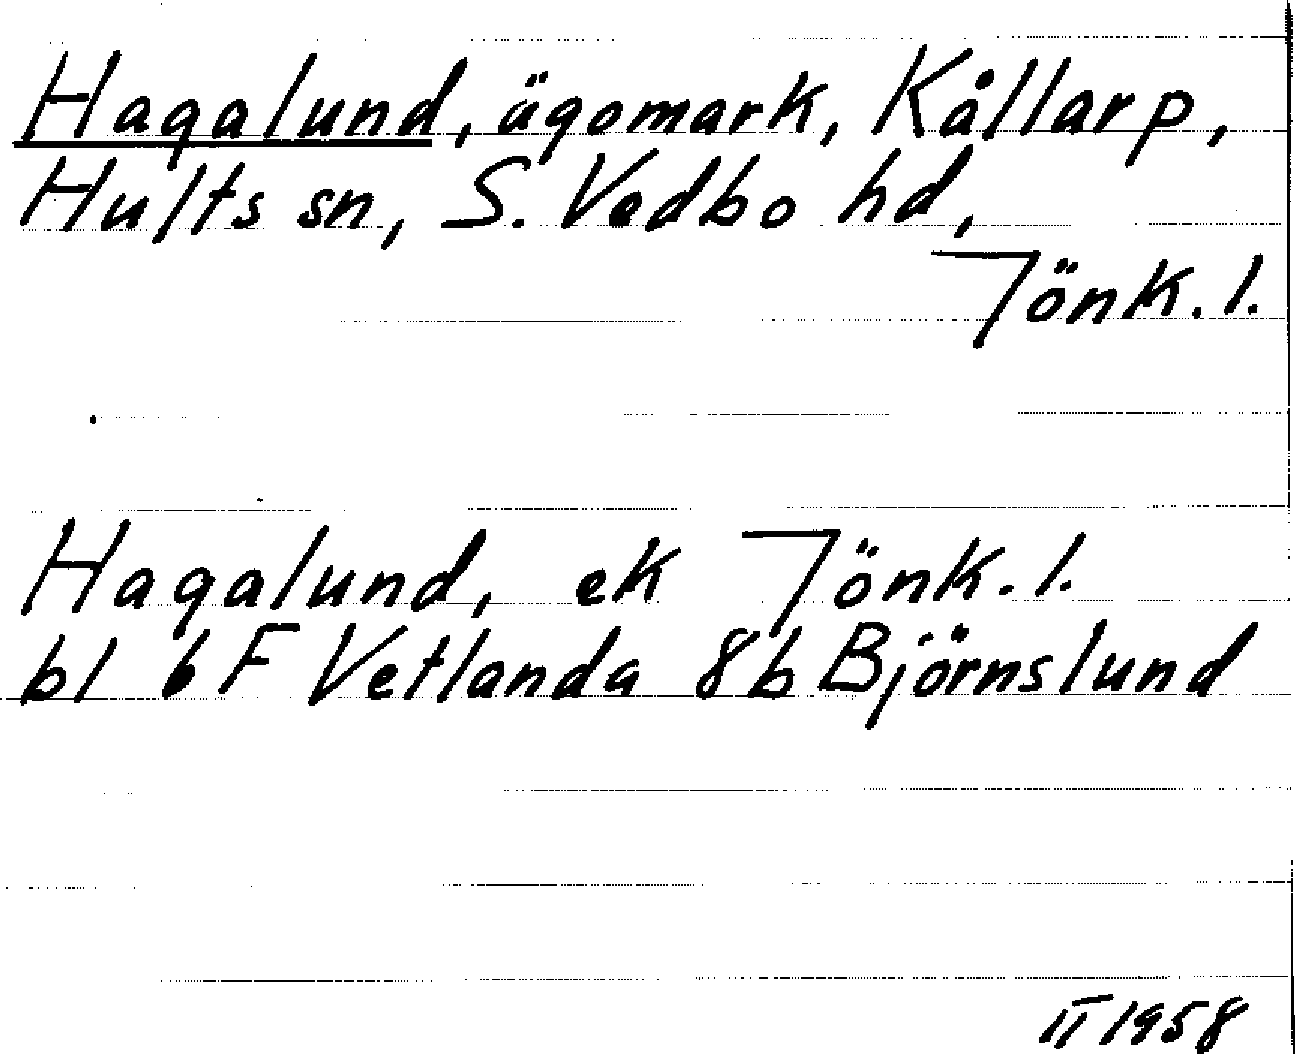 Hagalund, ägomark, Kållarp,
Hults sn, S. Vedbo hd,
Jönk. l.
Hagalund, ek Jönk. l.
bl 6 F Vetlanda 8b Björnslund
II 1958